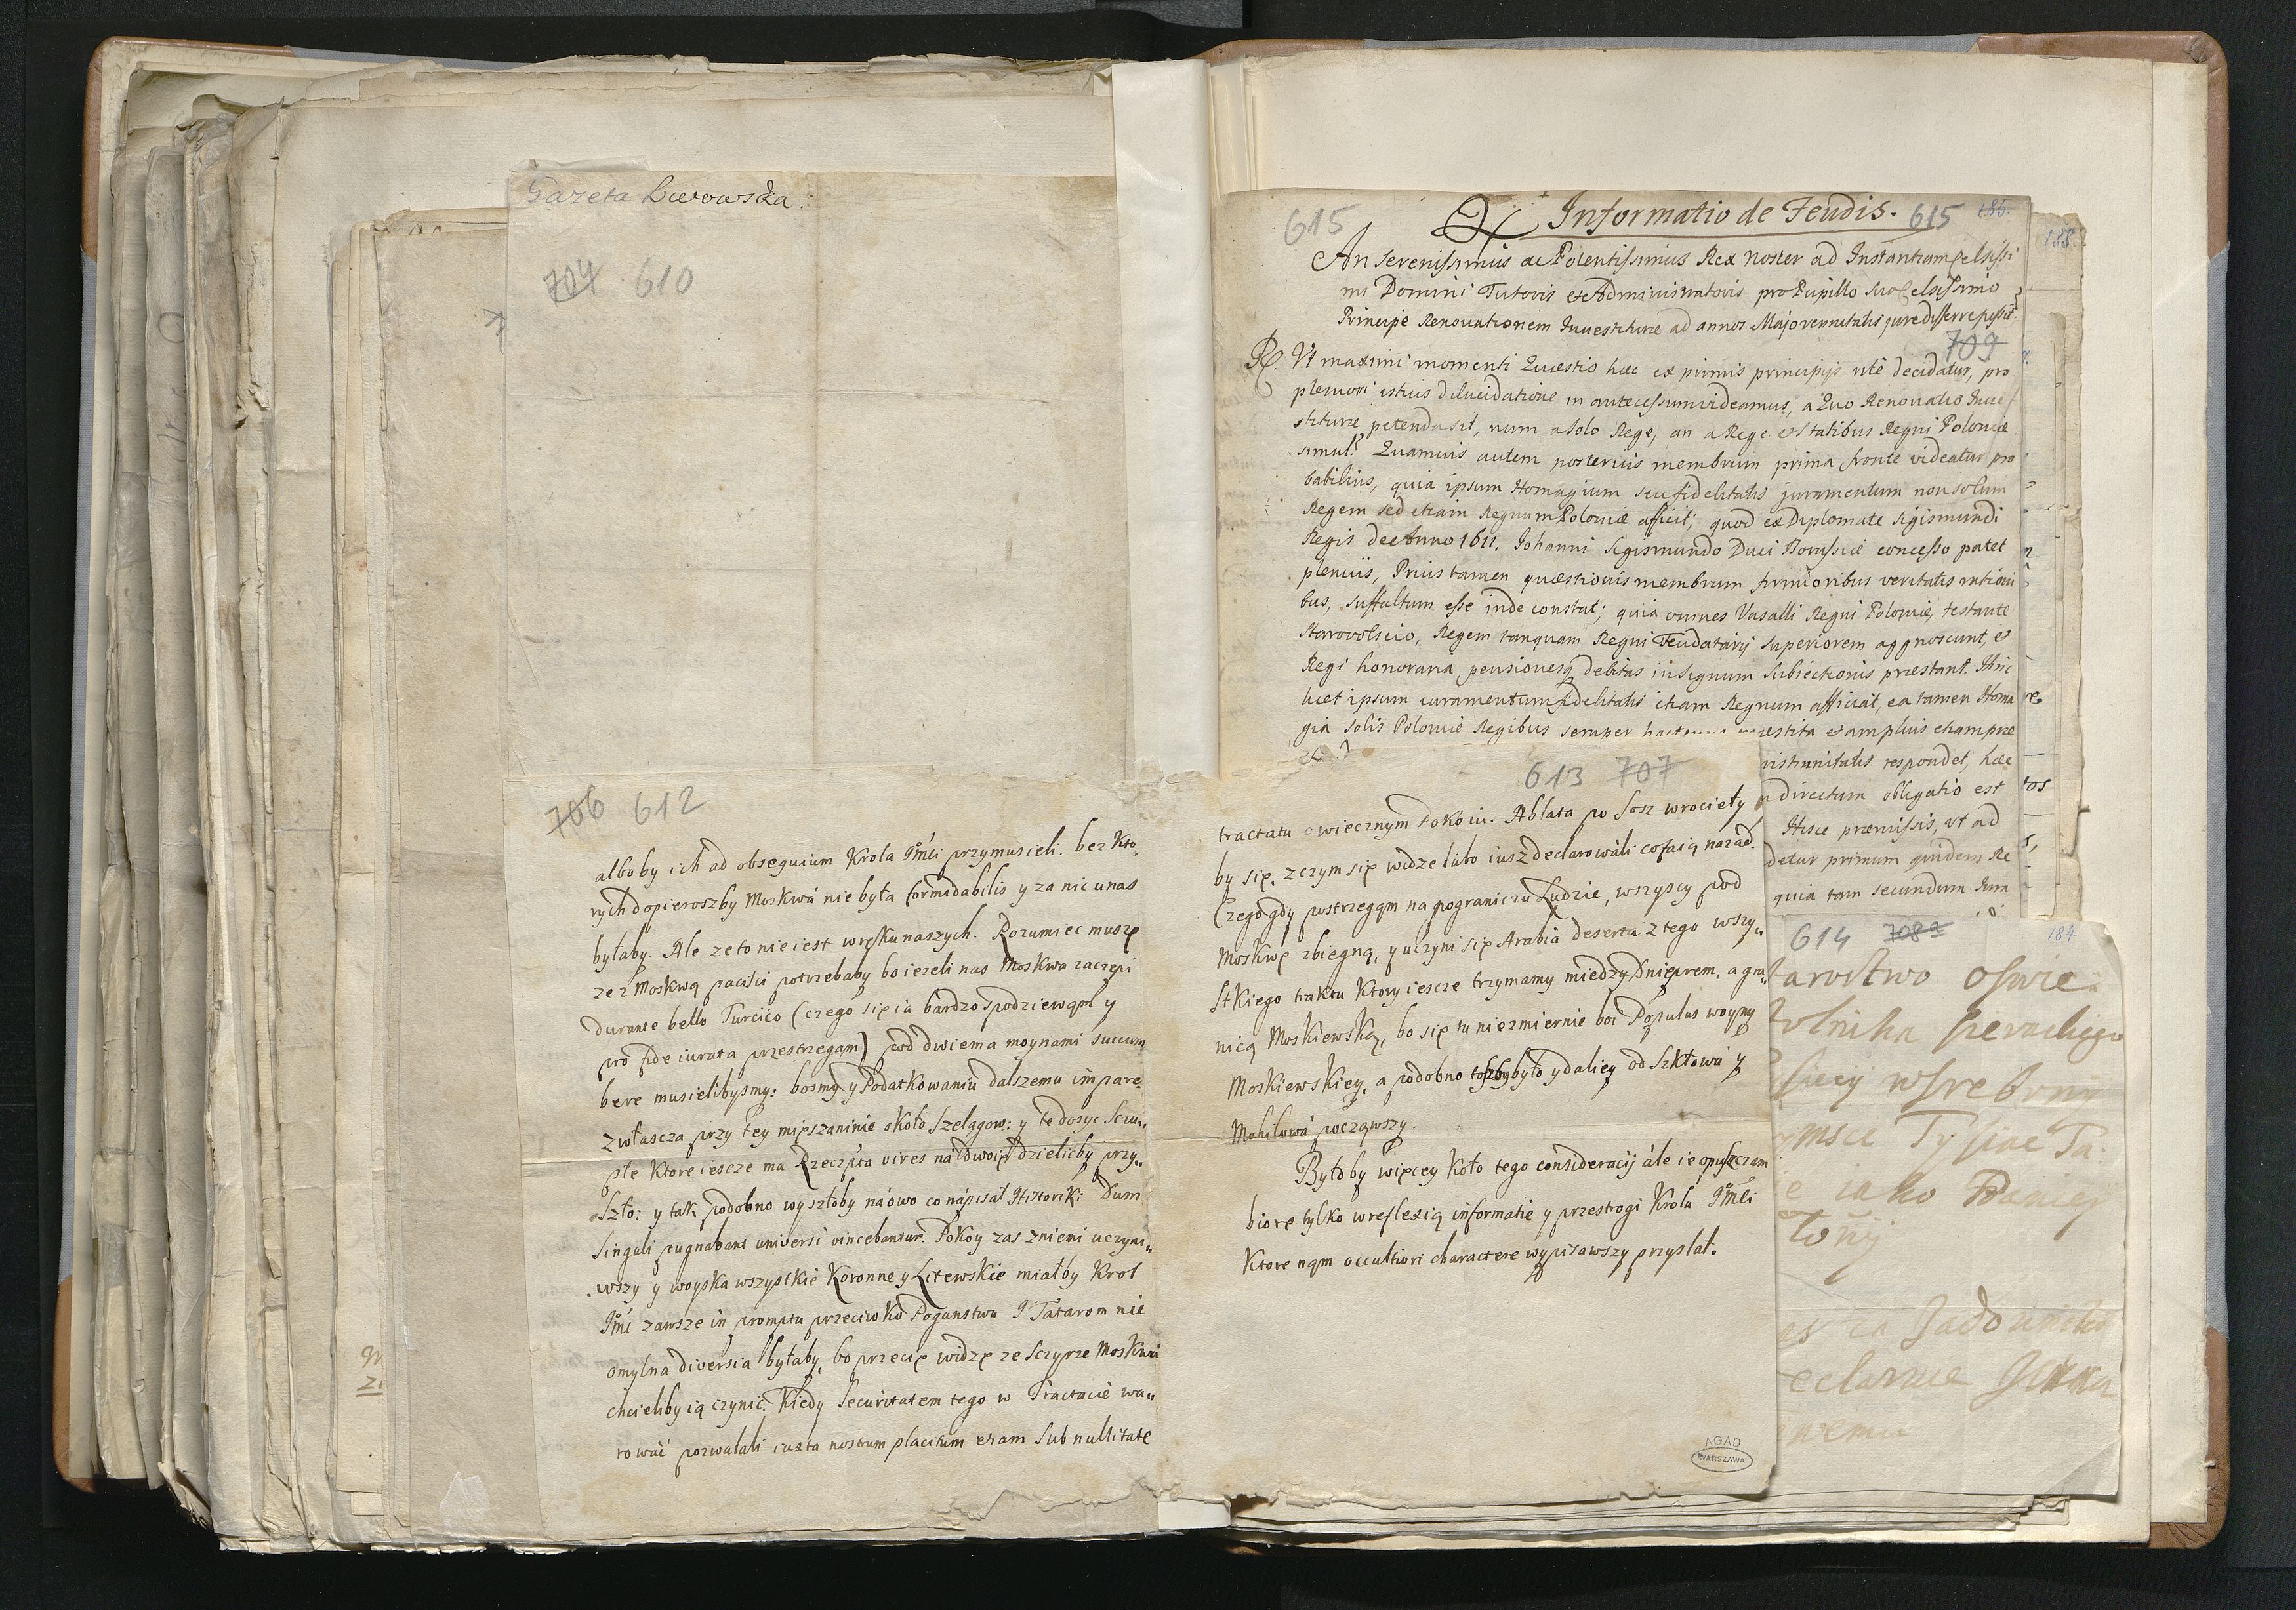 Gazeta Lwowska:
704 610
706 612
alboby ich ad obsequium Krola JMci przymusieli. bez kto„
rych dopieroszby Moskwá nie była formidabilis y za nic u nas
byłaby. Ale ze to nie iest w ręku naszych. Rozumiec muszę
ze z Moskwą pacisci potrzebaby bo iezeli nas Moskwa zaczepi
durante bello Turcico (czego się ia bardzo spodziewąm y
pro fide iurata przestrzegąm) pod dwiema woynami succum
bere musielibysmy: bosmy y Podatkowaniu dalszemu impare„
zwłascza przy tey mięszaninie około Szelągow: y te dosyc Szcu„
płe ktore iescze ma Rzeczpta vires ná dwoię dzielicby przy„
szło: y tak podobno wyszłoby ná owo co nápisał Historik: Dum
singuli pugnabant universi vincebantur. Pokoy zas z niemi uczyni„
wszy y woyska wszystkie Koronne y Litewskie miałby Krol
JMć zawsze in promptu przeciwko Poganstwu I Tatarom nie
omylna diversia byłaby, bo przecię widzę ze sczyrze Moskwá
chcieliby ią czynic. Kiedy securitatem tego w Tractacie wa„
rować pozwalali iuxta nostrum placitum etiam sub nullitate
613 707
tractatu o wiecznym Pokoiu. Ablata po Sosz wrociełyby
by się, z czym się widzę lubo iusz declarowáli cofaią nazad.
Czego gdy postrzegąm na pograniczu Ludzie, wszyscy pod
Moskwę zbiegną, y uczyni się Arabia deserta z tego wszy„
stkiego traktu ktory iescze trzymamy między Dnieprem, a gra„
nicą Moskiewską, bo się tu niezmiernie boi Populus woyny
Moskiewskiey, a podobno toszby było y daliey od Szkłowá y
Mohilowá począwszy.
Byłoby więcey koło tego consideracij ále ie opuszczam
biorę tylko w reflexią informatię y przestrogi Krolá JMci
Ktore nąm occultiori charactere wypisawszy przysłał.
AGAD
WARSZAWA
615 Informatio de Feudis. 615 185.
An Serenissimus ac Potentissimus Rex noster ad Instantiam Celsissi
mi Domini Tutoris et Administratoris pro Pupillo suo Celsissimo
Principe Renovationem Investiturae ad annos Majorennitatis jure differre possit?
709
R. Ut maximi momenti Quaestio haec ex primis principijs rite decidatur, pro
pleniori istius dilucidatione in antecessum videamus, a Quo Renovatio Inve
stiturae petenda sit, num a solo Rege, an a Rege et Statibus Regni Poloniae
simul? Quamuis autem posterius membrum prima fronte videatur pro
babilius, quia ipsum Homagium seu fidelitatis juramentum non solum
Regem sed etiam Regnum Poloniae afficit; quod ex Diplomate Sigismundi
Regis de Anno 1611. Johanni Sigismundo Duci Borussiae concesso patet
plenius, Prius tamen quaestionis membrum firmioribus veritatis rationi
bus, suffultum esse inde constat; quia omnes Vasalli Regni Poloniae, testante
Starovolscio, Regem tanquam Regni Feudatarij Superiorem agnoscunt, et
Regi honoraria pensionesq debitas in signum Subiectionis praestant. Hinc
licet ipsum iuramentum fidelitatis etiam Regnum afficiat, ea tamen Homa
gia solis Poloniae Regibus semper et amplius etiam prae
respondet, haec
directum obligatio est
Hisce praemissis, ut ad
detur primum quidem Re
quia tam secundum Jura
614 708a 184